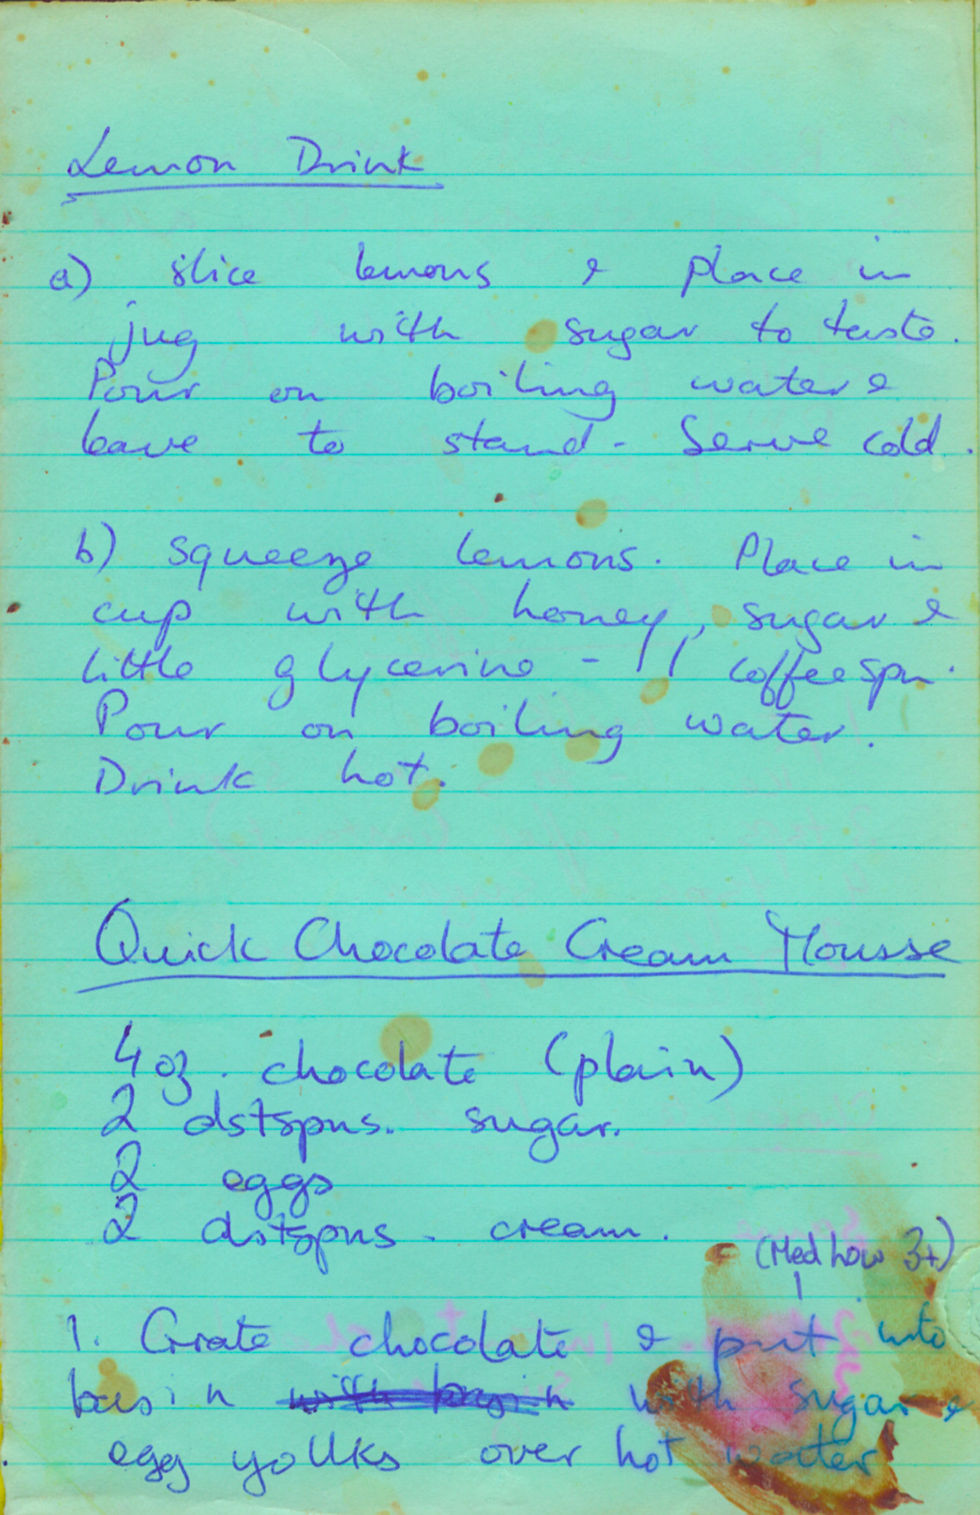 Lemon Drink
a) slice lemons & place in
jug with sugar to taste.
Pour on boiling water &
leave to stand - Serve cold.
b) squeeze lemons. Place in
cup with honey, sugar &
little glycerine - 1 coffeespn.
Pour on boiling water.
Drink hot.
Quick Chocolate Cream Mousse
4 oz. chocolate (plain)
2 dstspns. sugar.
2 eggs
2 dstspns. cream.
(Med low 3+)
1. Grate chocolate & put into
basin with basin with sugar &
egg yollks over hot water